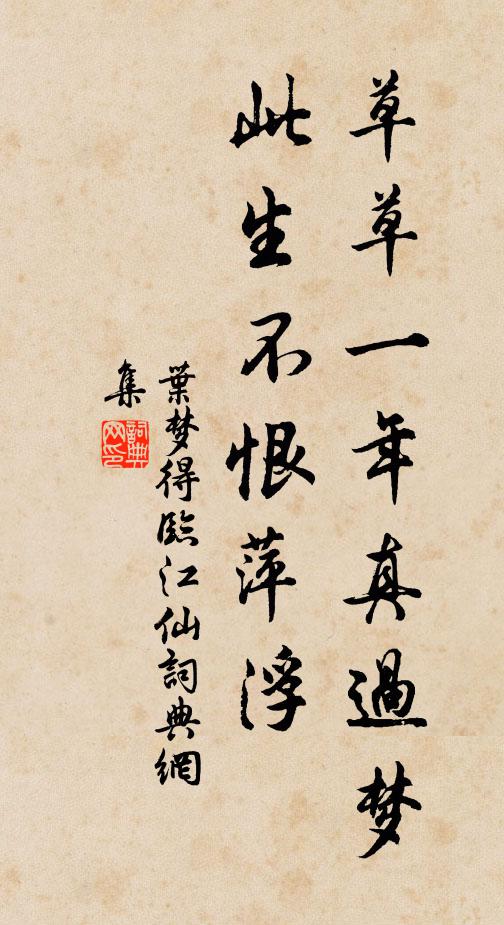 草草一年真過梦
此生不恨萍浮
葉梦得臨江仙詞典網
集
詞典
网印